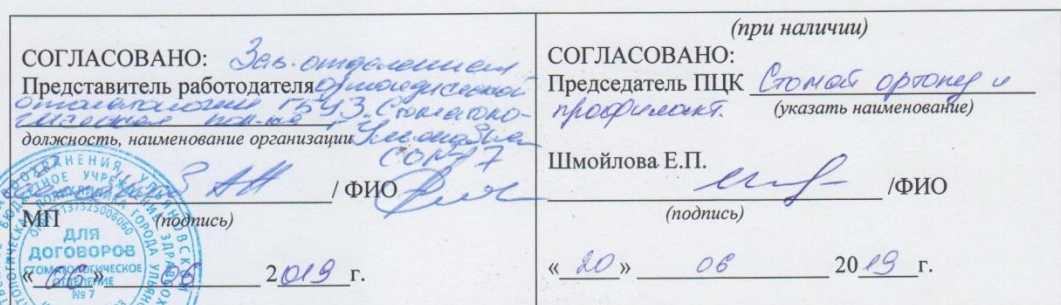 СОГЛАСОВАНО: Зав. отделением
Представитель работодателя ортопедической
стоматологии ГБУЗ Стоматоло-
гическая пол-ка
должность, наименование организации
/ ФИО
МП (подпись)
ДЛЯ
ДОГОВОРОВ
СТОМАТОЛОГИЧЕСКОЕ
ОТДЕЛЕНИЕ
№ 7
« » 06 2019 г.
(при наличии)
СОГЛАСОВАНО:
Председатель ПЦК Стомат ортопед и
профилакт. (указать наименование)
Шмойлова Е.П.
/ФИО
(подпись)
« 20 » 06 20 19 г.